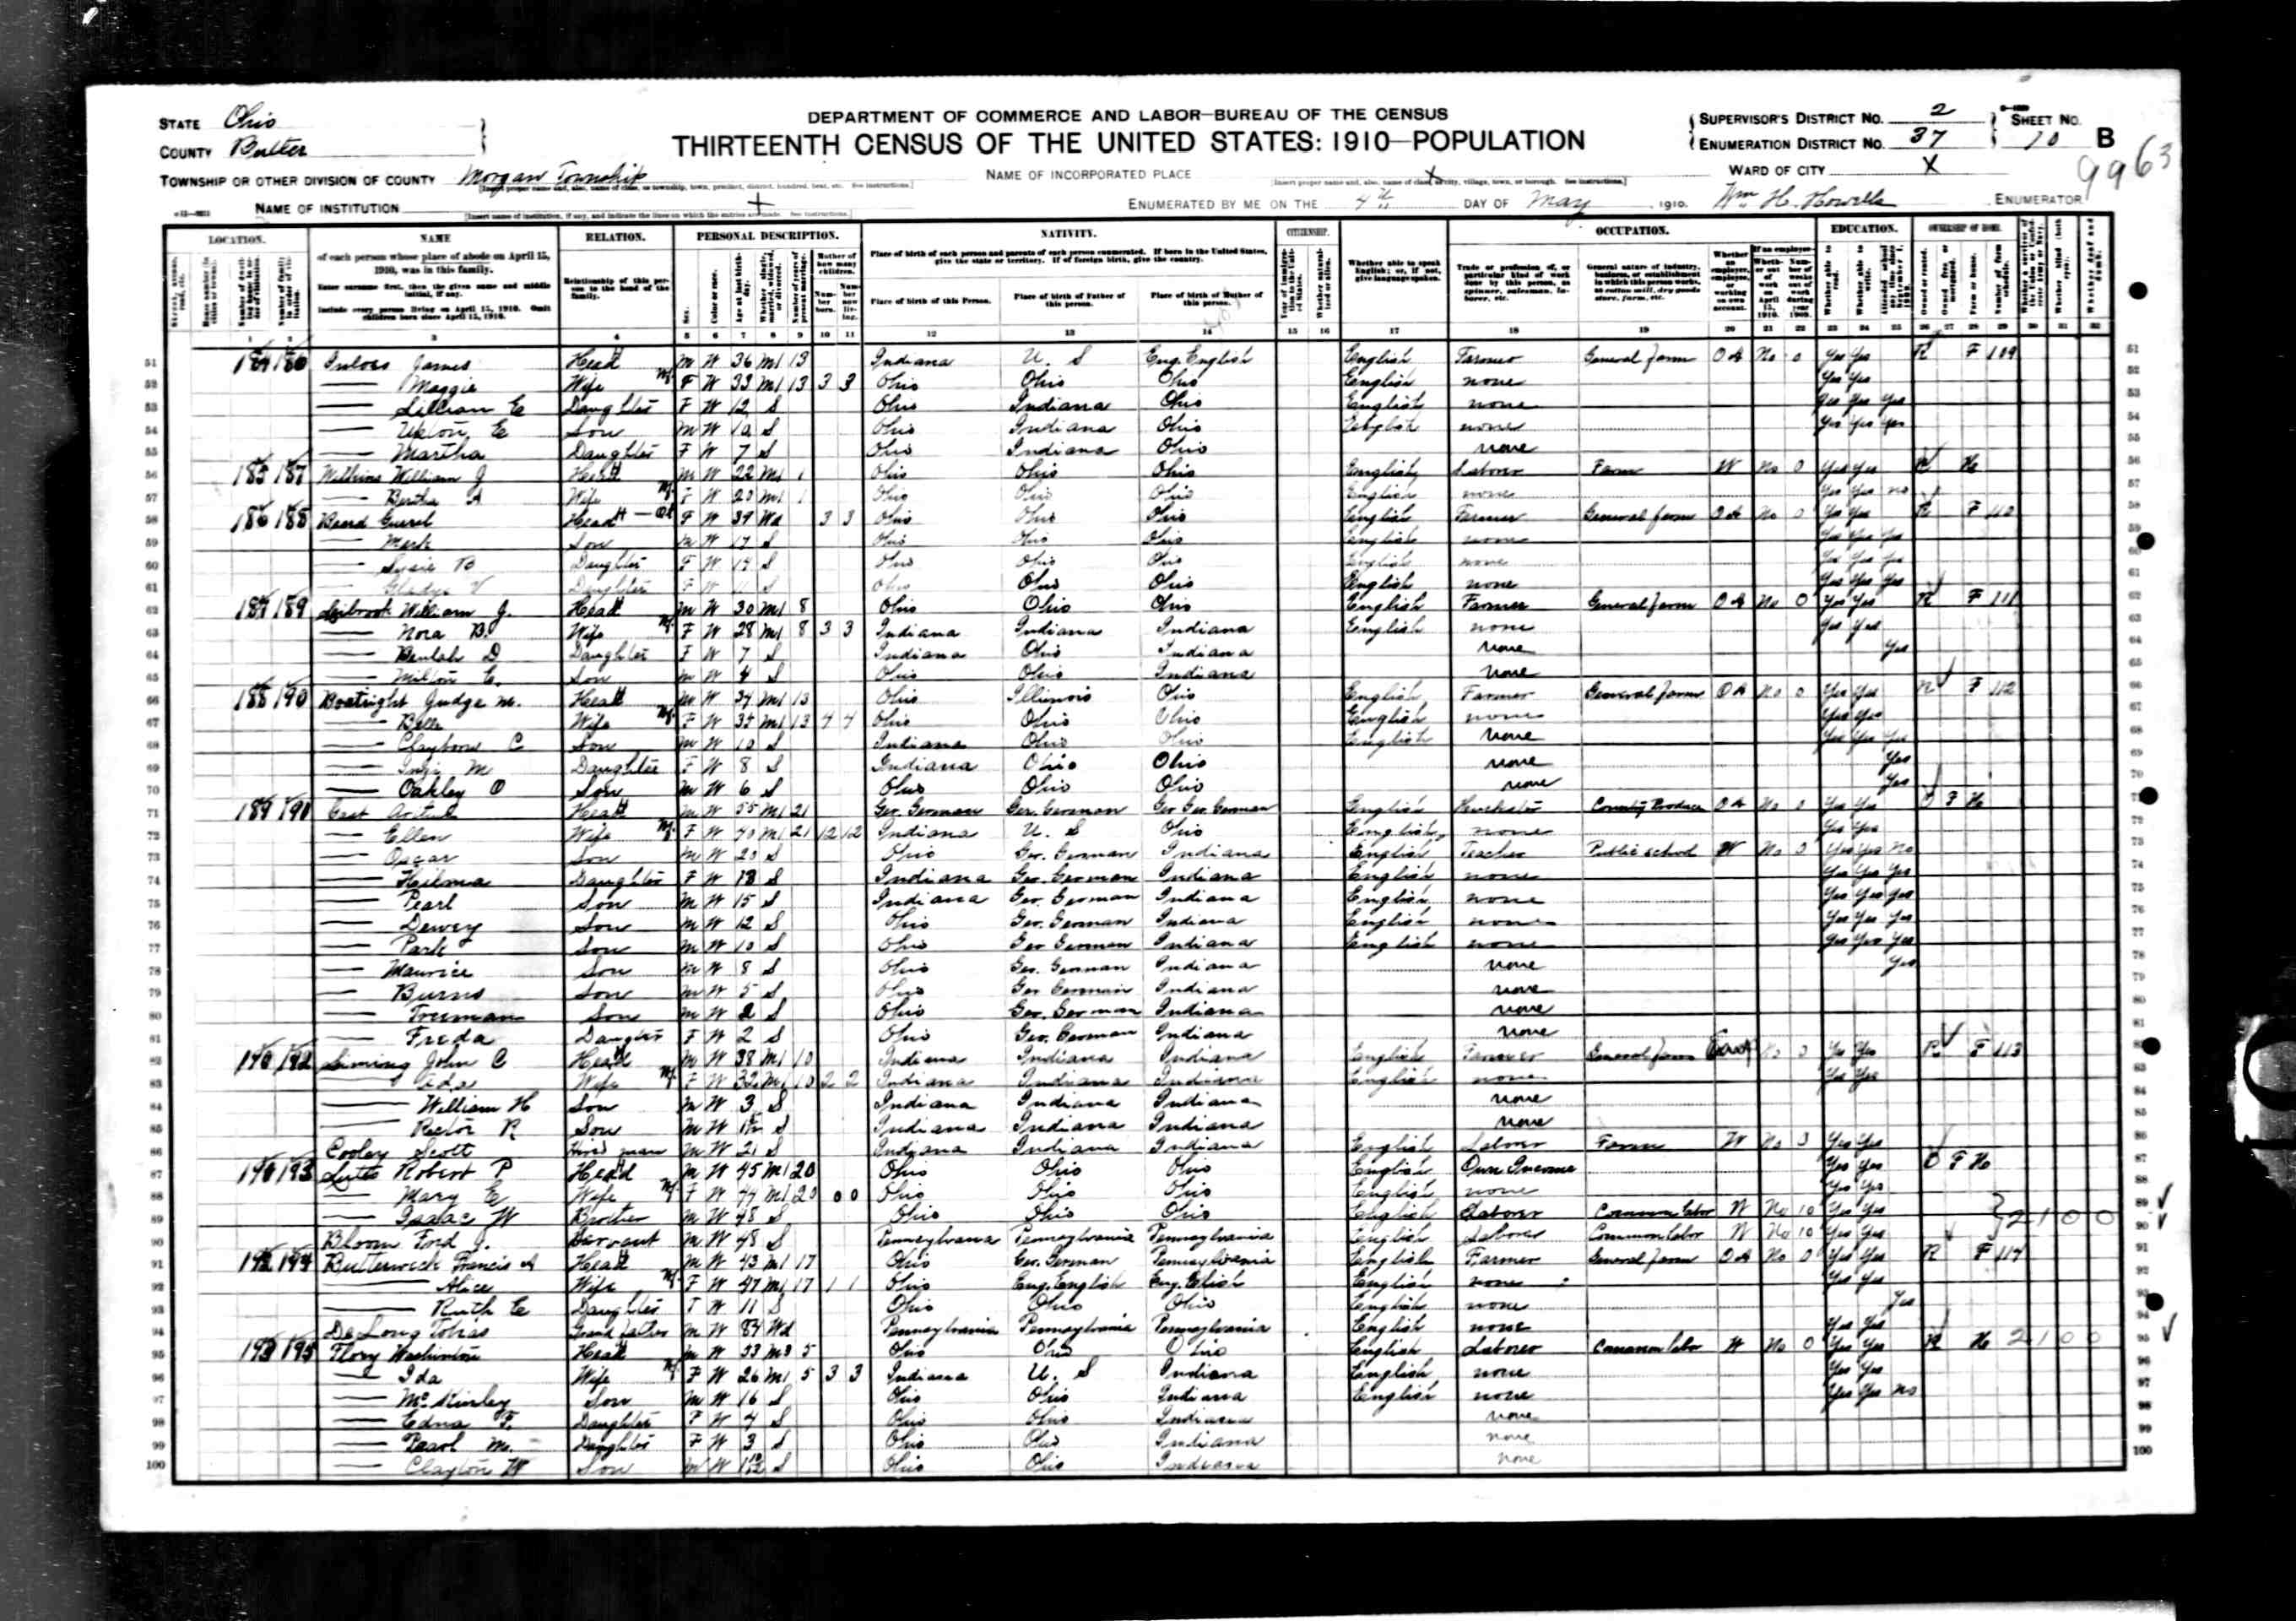 STATE Ohio
COUNTY Butler
TOWNSHIP OR OTHER DIVISION OF COUNTY Morgan Township
NAME OF INSTITUTION X
DEPARTMENT OF COMMERCE AND LABOR—BUREAU OF THE CENSUS
THIRTEENTH CENSUS OF THE UNITED STATES: 1910—POPULATION
NAME OF INCORPORATED PLACE X
ENUMERATED BY ME ON THE 4th DAY OF May, 1910. Wm H. Howells ENUMERATOR
SUPERVISOR'S DISTRICT NO. 2
ENUMERATION DISTRICT NO. 37
SHEET NO. 10 B
WARD OF CITY X
9963
LOCATION. NAME RELATION. PERSONAL DESCRIPTION. NATIVITY. CITIZENSHIP. OCCUPATION. EDUCATION. OWNERSHIP OF HOME.
of each person whose place of abode on April 15, 1910, was in this family.
Enter surname first, then the given name and middle initial, if any.
Include every person living on April 15, 1910. Omit children born since April 15, 1910.
Relationship of this person to the head of the family.
Place of birth of each person and parents of each person enumerated. If born in the United States, give the state or territory. If of foreign birth, give the country.
Place of birth of this Person. Place of birth of Father of this person. Place of birth of Mother of this person.
51 James Head M W 36 M1 13 Indiana U. S Eng. English English Farmer General farm OA No 0 Yes Yes R F 109
52 Maggie Wife F W 33 M1 13 3 3 Ohio Ohio Ohio English none Yes Yes
53 Lillian E Daughter F W 12 S Ohio Indiana Ohio English none Yes Yes Yes
54 E Son M W 10 S Ohio Indiana Ohio English none Yes Yes Yes
55 Martha Daughter F W 7 S Ohio Indiana Ohio none
56 185 187 Wilkins William J Head M W 22 M1 1 Ohio Ohio Ohio English Laborer Farm W No 0 Yes Yes R H
57 Bertha A Wife F W 20 M1 1 Ohio Ohio Ohio English none Yes Yes no
58 186 188 Beard Head F W 39 Wd 3 3 Ohio Ohio Ohio English Farmer General farm OA No 0 Yes Yes R F 110
59 Mark Son M W 17 S Ohio Ohio Ohio English none Yes Yes Yes
60 Susie B Daughter F W 14 S Ohio Ohio Ohio English none Yes Yes Yes
61 Gladys V Daughter F W 11 S Ohio Ohio Ohio English none Yes Yes Yes
62 187 189 William J. Head M W 30 M1 8 Ohio Ohio Ohio English Farmer General farm OA No 0 Yes Yes R F 111
63 Nora B. Wife F W 28 M1 8 3 3 Indiana Indiana Indiana English none Yes Yes
64 Beulah D Daughter F W 7 S Indiana Ohio Indiana none Yes
65 Milton E. Son M W 4 S Ohio Ohio Indiana none
66 188 190 Boatright Judge M. Head M W 34 M1 13 Ohio Illinois Ohio English Farmer General farm OA No 0 Yes Yes R F 112
67 Belle Wife F W 35 M1 13 4 4 Ohio Ohio Ohio English none Yes Yes
68 Clayborn C Son M W 10 S Indiana Ohio Ohio English none Yes Yes Yes
69 M Daughter F W 8 S Indiana Ohio Ohio none Yes
70 Oakley O Son M W 6 S Ohio Ohio Ohio none Yes
71 189 191 Cast Head M W 55 M1 21 Ger. German Ger. German Ger. German English Huckster Country Produce OA No 0 Yes Yes O F H
72 Ellen Wife F W 40 M1 21 12 12 Indiana U. S Ohio English none Yes Yes
73 Oscar Son M W 20 S Ohio Ger. German Indiana English Teacher Public school W No 0 Yes Yes No
74 Hilma Daughter F W 18 S Indiana Ger. German Indiana English none Yes Yes Yes
75 Pearl Son M W 15 S Indiana Ger. German Indiana English none Yes Yes Yes
76 Dewey Son M W 12 S Ohio Ger. German Indiana English none Yes Yes Yes
77 Park Son M W 10 S Ohio Ger German Indiana English none Yes Yes Yes
78 Maurice Son M W 8 S Ohio Ger. German Indiana none Yes
79 Burns Son M W 5 S Ohio Ger German Indiana none
80 Truman Son M W 2 S Ohio Ger. German Indiana none
81 Freda Daughter F W 2 S Ohio Ger. German Indiana none
82 190 192 Liming John C Head M W 38 M1 10 Indiana Indiana Indiana English Farmer General farm No 0 Yes Yes R F 113
83 Ada Wife F W 32 M1 10 2 2 Indiana Indiana Indiana English none Yes Yes
84 William H Son M W 3 S Indiana Indiana Indiana none
85 Rector R Son M W S Indiana Indiana Indiana none
86 Cooley Scott Hired man M W 21 S Indiana Indiana Indiana English Laborer Farm W No 0 Yes Yes
87 191 193 Robert P Head M W 45 M1 20 Ohio Ohio Ohio English Own Income Yes Yes O F H
88 Mary E Wife F W 44 M1 20 0 0 Ohio Ohio Ohio English none Yes Yes
89 Isaac W Brother M W 48 S Ohio Ohio Ohio English Laborer Common labor W No 10 Yes Yes
90 Bloom Ford J. Servant M W 48 S Pennsylvania Pennsylvania Pennsylvania English Laborer Common labor W No 10 Yes Yes 2 1 0 0
91 192 194 Butterweck Francis A Head M W 43 M1 17 Ohio Ger. German Pennsylvania English Farmer General farm OA No 0 Yes Yes R F 114
92 Alice Wife F W 47 M1 17 1 1 Ohio Eng. English Eng. English English none Yes Yes
93 Ruth E Daughter F W 11 S Ohio Ohio Ohio English none Yes
94 DeLong Tobias Grand father M W 84 Wd Pennsylvania Pennsylvania Pennsylvania English none Yes Yes
95 193 195 Flory Washington Head M W 33 5 Ohio Ohio Ohio English Laborer Common labor W No 0 Yes Yes R H 2 1 0 0
96 Ida Wife F W 26 M1 5 3 3 Indiana U. S Indiana English none Yes Yes
97 McKinley Son M W 16 S Ohio Ohio Indiana English none Yes Yes no
98 Edna F. Daughter F W 4 S Ohio Ohio Indiana none
99 Pearl M. Daughter F W 3 S Ohio Ohio Indiana none
100 Clayton W Son M W S Ohio Ohio Indiana none